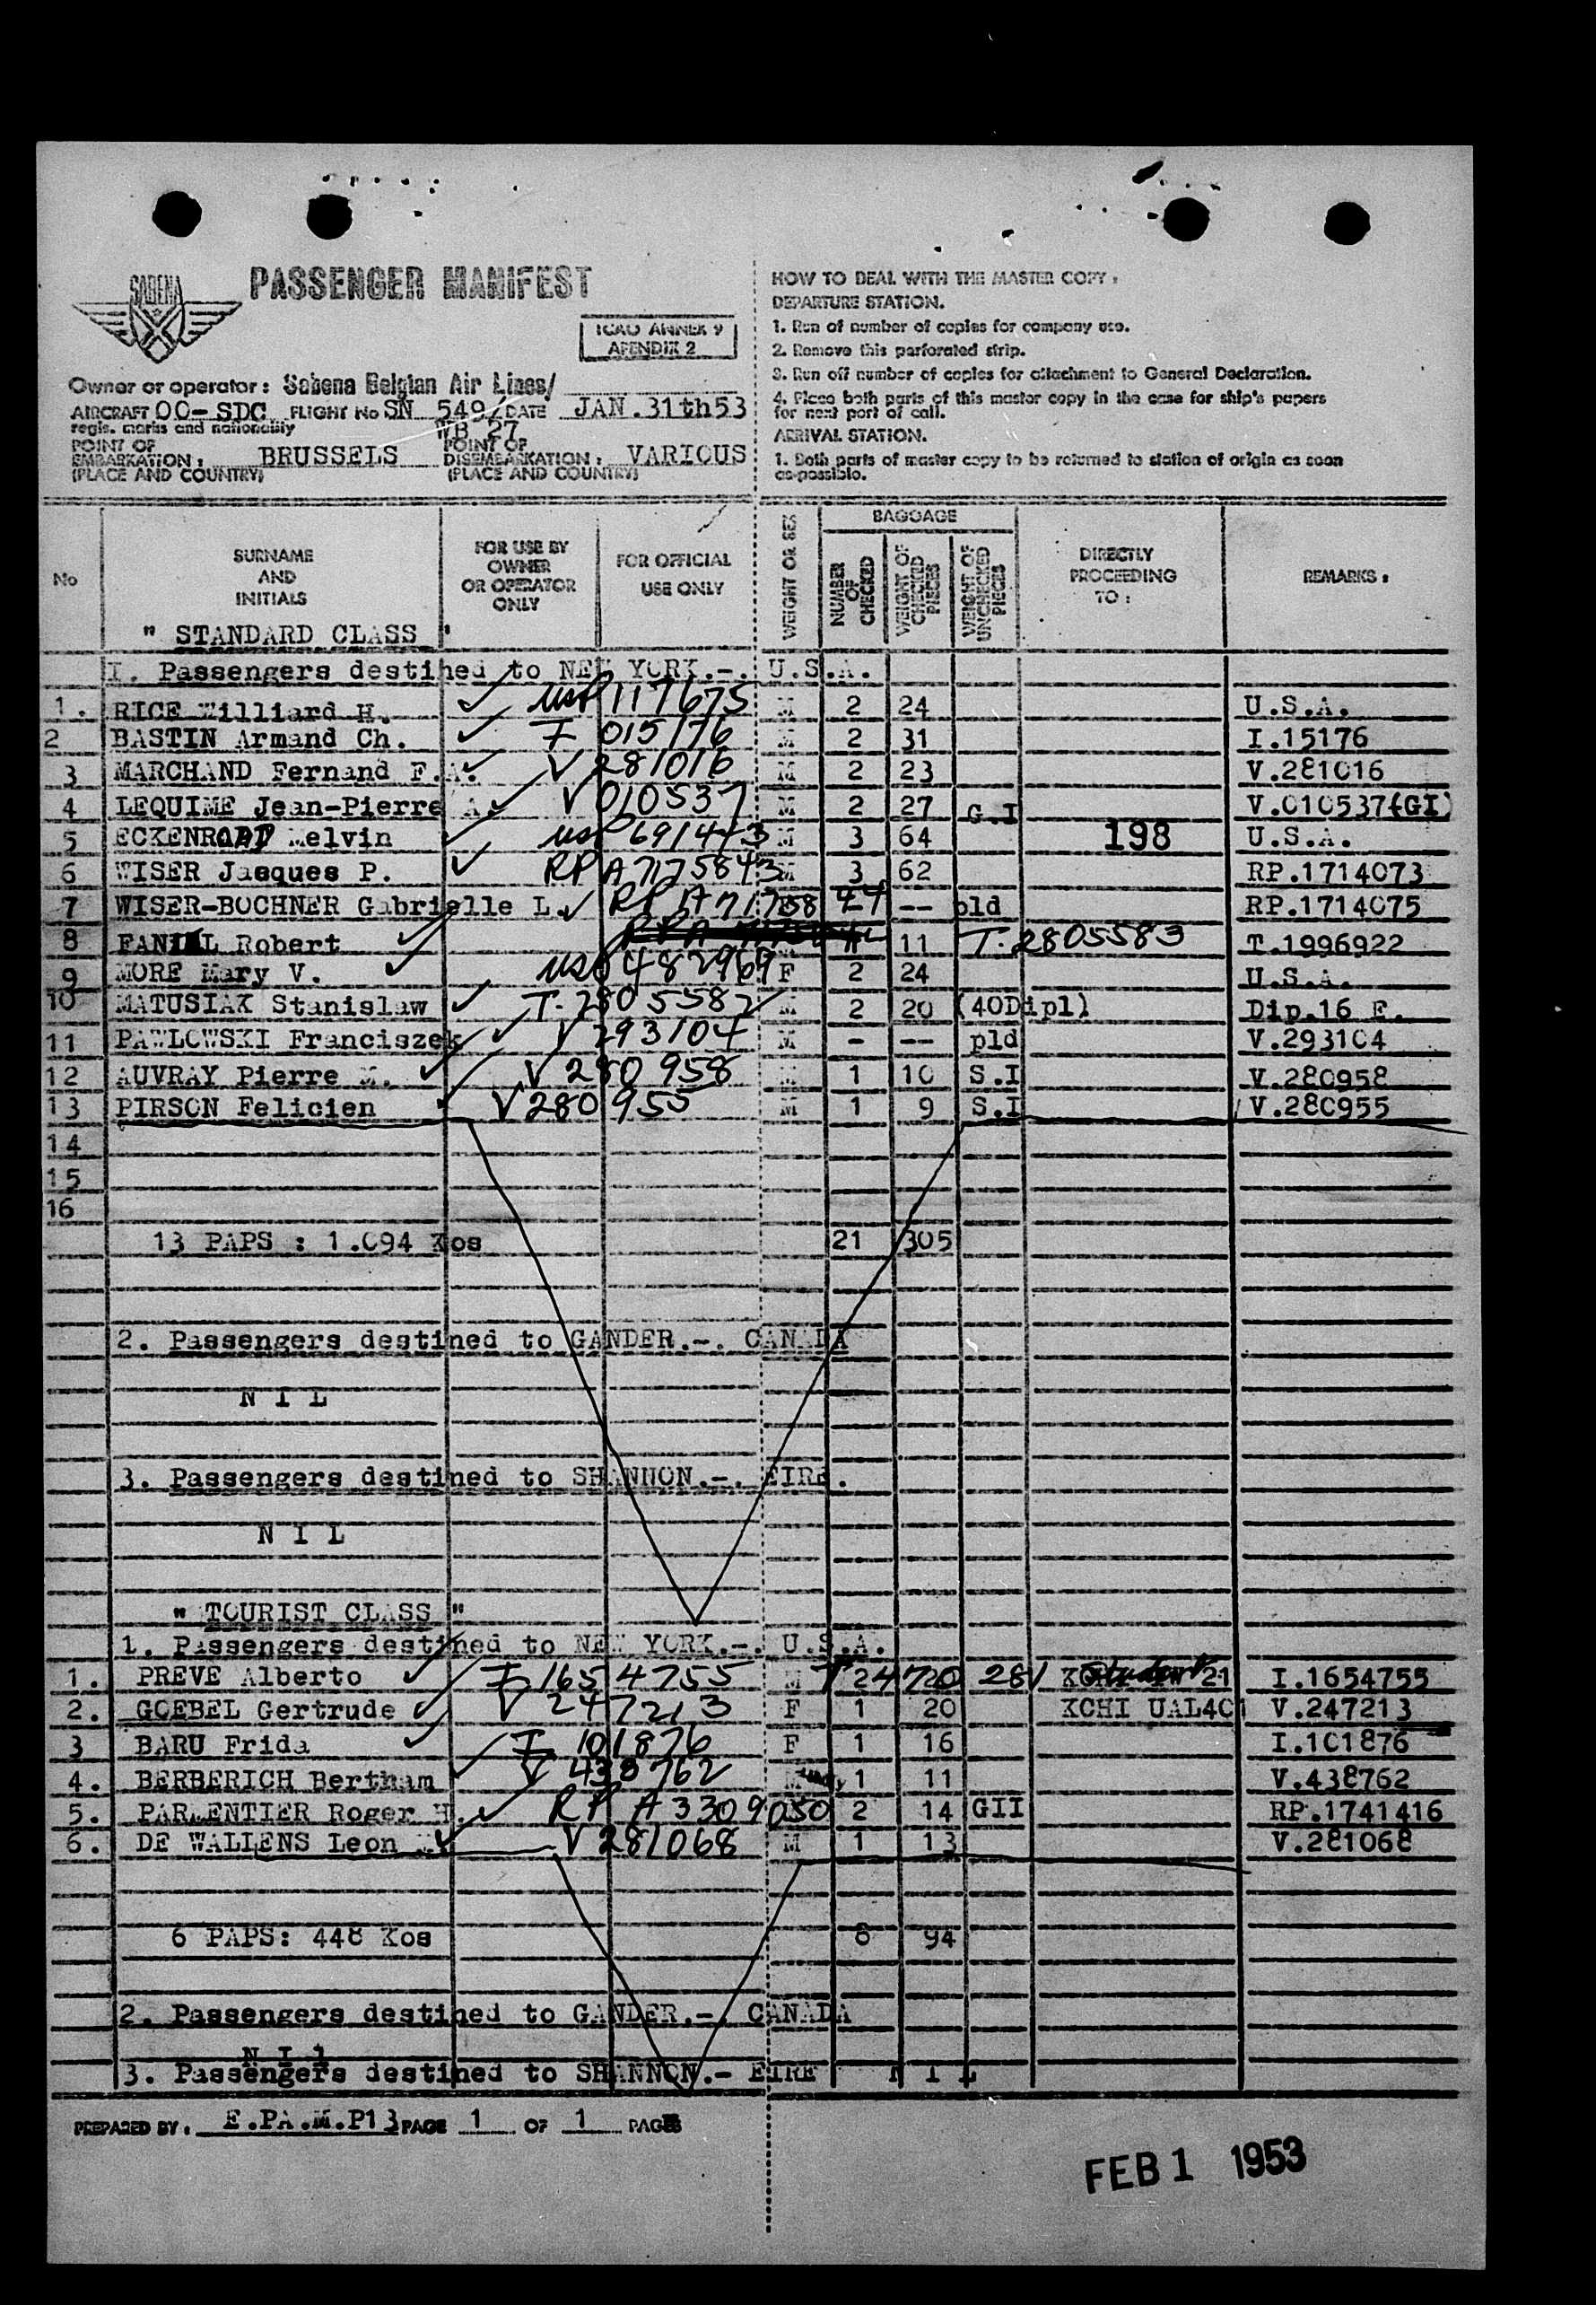 SABENA
PASSENGER MANIFEST
ICAO ANNEX 9
APENDIX 2
Owner or operator : Sabena Belgian Air Lines/
AIRCRAFT OO-SDC FLIGHT No SN 549/ DATE JAN.31th53
regis. marks and nationality WB 27
POINT OF EMBARKATION : BRUSSELS POINT OF DISEMBARKATION : VARIOUS
(PLACE AND COUNTRY) (PLACE AND COUNTRY)
HOW TO DEAL WITH THE MASTER COPY :
DEPARTURE STATION.
1. Run of number of copies for company use.
2. Remove this perforated strip.
3. Run off number of copies for attachment to General Declaration.
4. Place both parts of this master copy in the case for ship's papers
for next port of call.
ARRIVAL STATION.
1. Both parts of master copy to be returned to station of origin as soon
as possible.
No SURNAME AND INITIALS FOR USE BY OWNER OR OPERATOR ONLY FOR OFFICIAL USE ONLY WEIGHT OR SEX BAGGAGE NUMBER OF CHECKED WEIGHT OF CHECKED PIECES WEIGHT OF UNCHECKED PIECES DIRECTLY PROCEEDING TO : REMARKS :
" STANDARD CLASS "
1. Passengers destined to NEW YORK.-. U.S.A.
1. RICE Williard H. usp 117675 M 2 24 U.S.A.
2 BASTIN Armand Ch. I 015176 M 2 31 I.15176
3 MARCHAND Fernand F.A. V 281016 M 2 23 V.281016
4 LEQUIME Jean-Pierre A. V 010537 M 2 27 G.I V.010537(GI)
5 Melvin usp 691443 M 3 64 198 U.S.A.
6 WISER Jasques P. RP A7175843 M 3 62 RP.1714073
7 WISER-BOCHNER Gabrielle L. RP A7175844 -- pld RP.1714075
8 Robert 11 T.2805583 T.1996922
9 MORE Mary V. usp 482969 F 2 24 U.S.A.
10 MATUSIAK Stanislaw T.2805582 M 2 20 (40Dipl) Dip.16 E.
11 PAWLOWSKI Franciszek V 293104 M - -- pld V.293104
12 AUVRAY Pierre M. V 280958 M 1 10 S.I V.280958
13 PIRSON Felicien V 280955 M 1 9 S.I V.280955
14
15
16
13 PAPS : 1.094 Kos 21 305
2. Passengers destined to GANDER.-. CANADA
N I L
3. Passengers destined to SHANNON.-. EIRE.
N I L
" TOURIST CLASS "
1. Passengers destined to NEW YORK.-. U.S.A.
1. PREVE Alberto I 1654755 M 2 20 21 I.1654755
2. GOEBEL Gertrude V 247213 F 1 20 KCHI UAL401 V.247213
3 BARU Frida I 101876 F 1 16 I.101876
4. BERBERICH Bertham V 438762 M 1 11 V.438762
5. PARMENTIER Roger H. RP A3309050 2 14 GII RP.1741416
6. DE WALLENS Leon V 281068 M 1 13 V.281068
6 PAPS: 448 Kos 8 94
2. Passengers destined to GANDER.-. CANADA
N I l
3. Passengers destined to SHANNON.- EIRE N I L
PREPARED BY : E.PA.M.P13 PAGE 1 OF 1 PAGES
FEB 1 1953